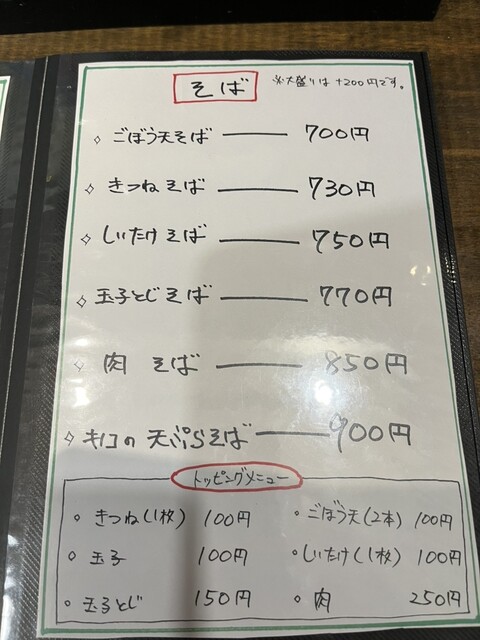 そば
※大盛りは+200円です。
◇ ごぼう天そば ── 700円
◇ きつねそば ── 730円
◇ しいたけそば ── 750円
◇ 玉子とじそば ── 770円
◇ 肉 そば ── 850円
◇ キノコの天ぷらそば ── 900円
トッピングメニュー
◦ きつね(1枚) 100円 ◦ ごぼう天(2本) 100円
◦ 玉子 100円 ◦ しいたけ(1枚) 100円
◦ 玉子とじ 150円 ◦ 肉 250円